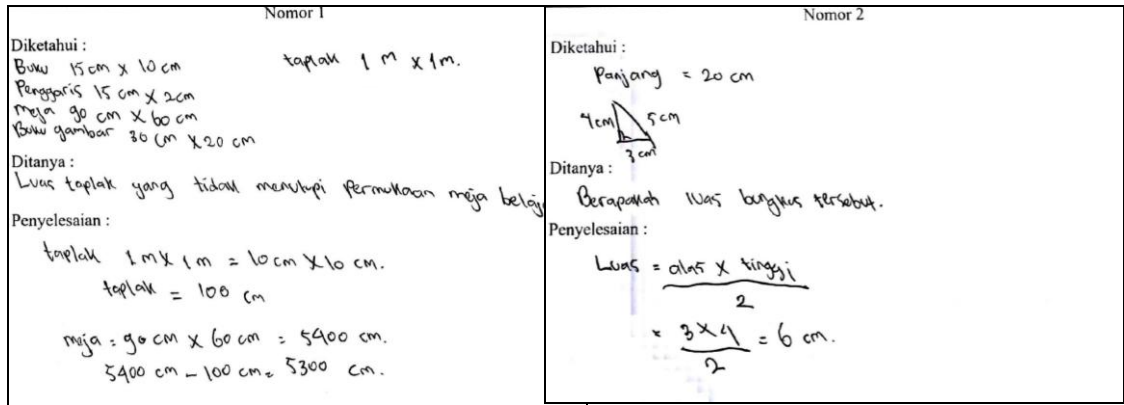 Nomor 1
Diketahui :
Buku 15 cm x 10 cm
taplak 1 m x 1 m.
Penggaris 15 cm x 2 cm
meja 90 cm x 60 cm
Buku gambar 30 cm x 20 cm
Ditanya :
Luas taplak yang tidak menutupi permukaan meja belaj
Penyelesaian :
taplak 1 m x 1 m = 10 cm x 10 cm.
taplak = 100 cm
meja = 90 cm x 60 cm = 5400 cm.
5400 cm - 100 cm = 5300 cm.
Nomor 2
Diketahui :
Panjang = 20 cm
4 cm 5 cm
3 cm
Ditanya :
Berapakah luas bungkus tersebut.
Penyelesaian :
Luas = alas x tinggi
2
= 3 x 4 = 6 cm.
2